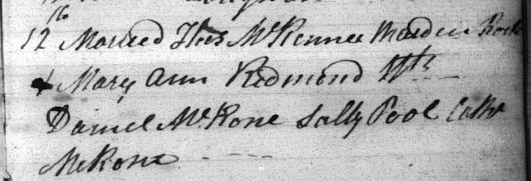 12th Married Thos McKennee
& Mary Ann Redmond Wts
Daniel McKone Sally Pool Cathr
McKone